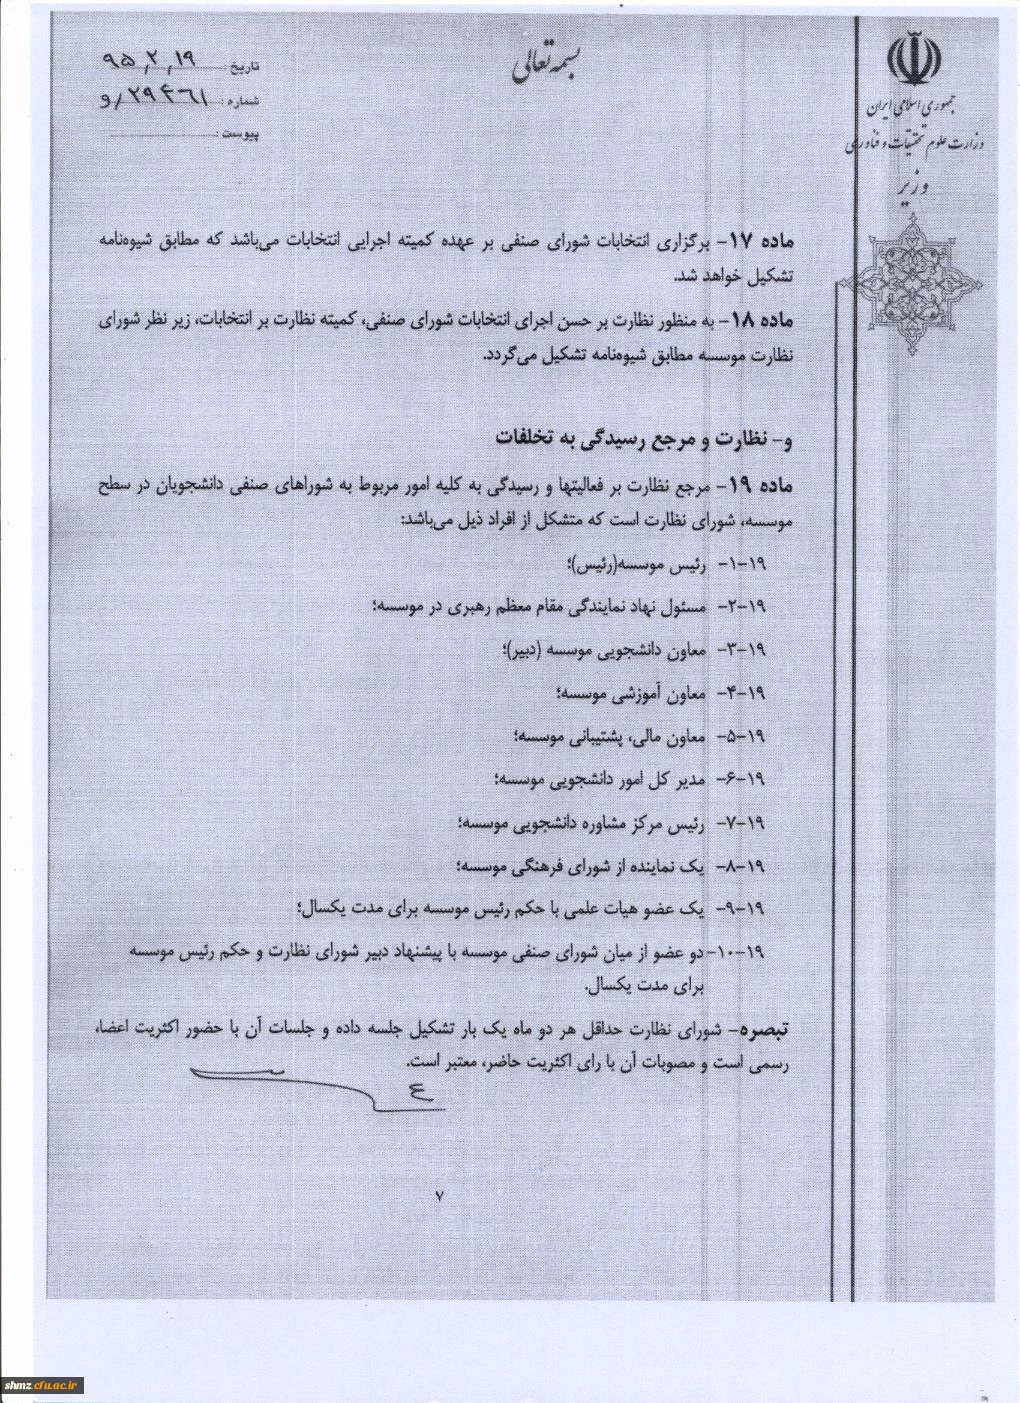 بسمه تعالی
جمهوری اسلامی ایران
وزارت علوم تحقیقات و فناوری
وزیر
تاریخ : ۹۵٫۲٫۱۹
شماره : ۲۹۴۶۱/و
پیوست :
ماده ۱۷- برگزاری انتخابات شورای صنفی بر عهده کمیته اجرایی انتخابات می‌باشد که مطابق شیوه‌نامه
تشکیل خواهد شد.
ماده ۱۸- به منظور نظارت بر حسن اجرای انتخابات شورای صنفی، کمیته نظارت بر انتخابات، زیر نظر شورای
نظارت موسسه مطابق شیوه‌نامه تشکیل می‌گردد.
و- نظارت و مرجع رسیدگی به تخلفات
ماده ۱۹- مرجع نظارت بر فعالیتها و رسیدگی به کلیه امور مربوط به شوراهای صنفی دانشجویان در سطح
موسسه، شورای نظارت است که متشکل از افراد ذیل می‌باشد:
۱۹-۱- رئیس موسسه(رئیس)؛
۱۹-۲- مسئول نهاد نمایندگی مقام معظم رهبری در موسسه؛
۱۹-۳- معاون دانشجویی موسسه (دبیر)؛
۱۹-۴- معاون آموزشی موسسه؛
۱۹-۵- معاون مالی، پشتیبانی موسسه؛
۱۹-۶- مدیر کل امور دانشجویی موسسه؛
۱۹-۷- رئیس مرکز مشاوره دانشجویی موسسه؛
۱۹-۸- یک نماینده از شورای فرهنگی موسسه؛
۱۹-۹- یک عضو هیات علمی با حکم رئیس موسسه برای مدت یکسال؛
۱۹-۱۰- دو عضو از میان شورای صنفی موسسه با پیشنهاد دبیر شورای نظارت و حکم رئیس موسسه
برای مدت یکسال.
تبصره- شورای نظارت حداقل هر دو ماه یک بار تشکیل جلسه داده و جلسات آن با حضور اکثریت اعضا،
رسمی است و مصوبات آن با رای اکثریت حاضر، معتبر است.
۷
shmz.cfu.ac.ir